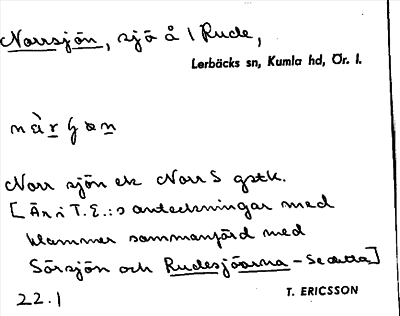 Norrsjön, sjö å 1 Rude,
Lerbäcks sn, Kumla hd, Ör. l.
Norr sjön ek Norr S gstk.
[Är i T.E.:s anteckningar med
klammer sammanförd med
Sörsjön och Rudesjöarna – Se detta]
22.1
T. ERICSSON